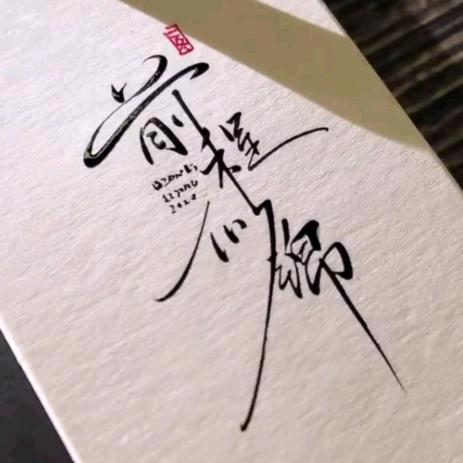 前程
似锦
2020